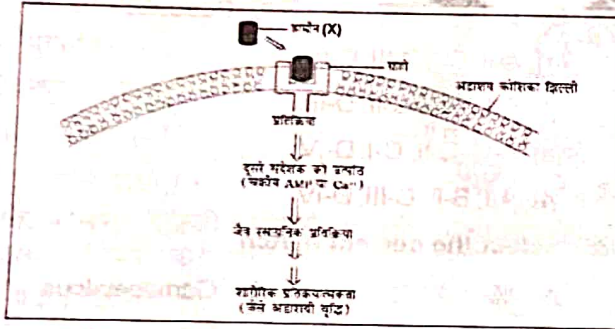 हार्मोन (X)
ग्राही
अंडाशय कोशिका झिल्ली
प्रतिक्रिया
दूसरे संदेशक की उत्पत्ति
(चक्रीय AMP व Ca⁺⁺)
जैव रसायनिक प्रतिक्रिया
शारीरिक
(जैसे अंडाशयी वृद्धि)